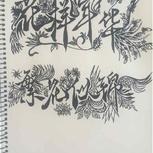 花样年华
繁花似锦